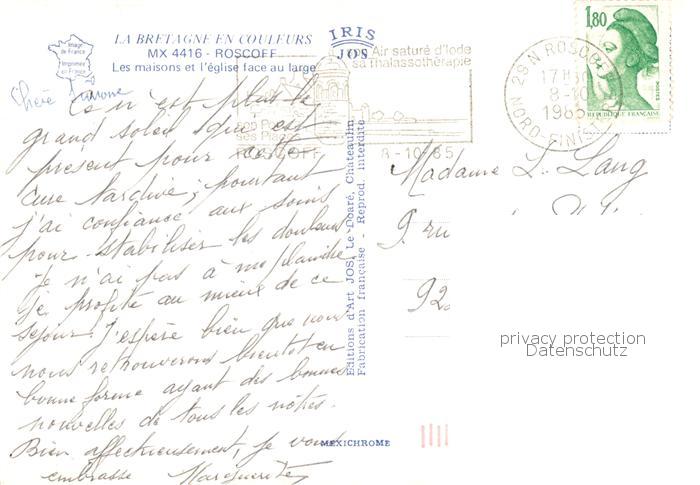 LA BRETAGNE EN COULEURS
MX 4416 - ROSCOFF
Les maisons et l'église face au large
Image de France
Imprimée en France
IRIS
JOS
son Air saturé d'Iode
sa thalassothérapie
ROSCOFF
8-10-85
29 N ROSCOFF
17H30
8-10
1985
NORD-FINISTERE
1,80
REPUBLIQUE FRANCAISE
Chère
Ce n'est plus le
grand soleil qui est
présent pour cette
cure tardive; pourtant
j'ai confiance aux soins
pour stabiliser les douleurs
Je n'ai pas à me plaindre
je profite au mieux de ce
séjour. J'espère bien que nous
nous retrouverons bientôt en
bonne forme ayant des bonnes
nouvelles de tous les nôtres.
Bien affectueusement, je vous
embrasse Marguerite
Editions d'Art JOS, Le Doaré, Châteaulin
Fabrication française - Reprod. Interdite
MEXICHROME
Madame L. Lang
9. ru
92
privacy protection
Datenschutz